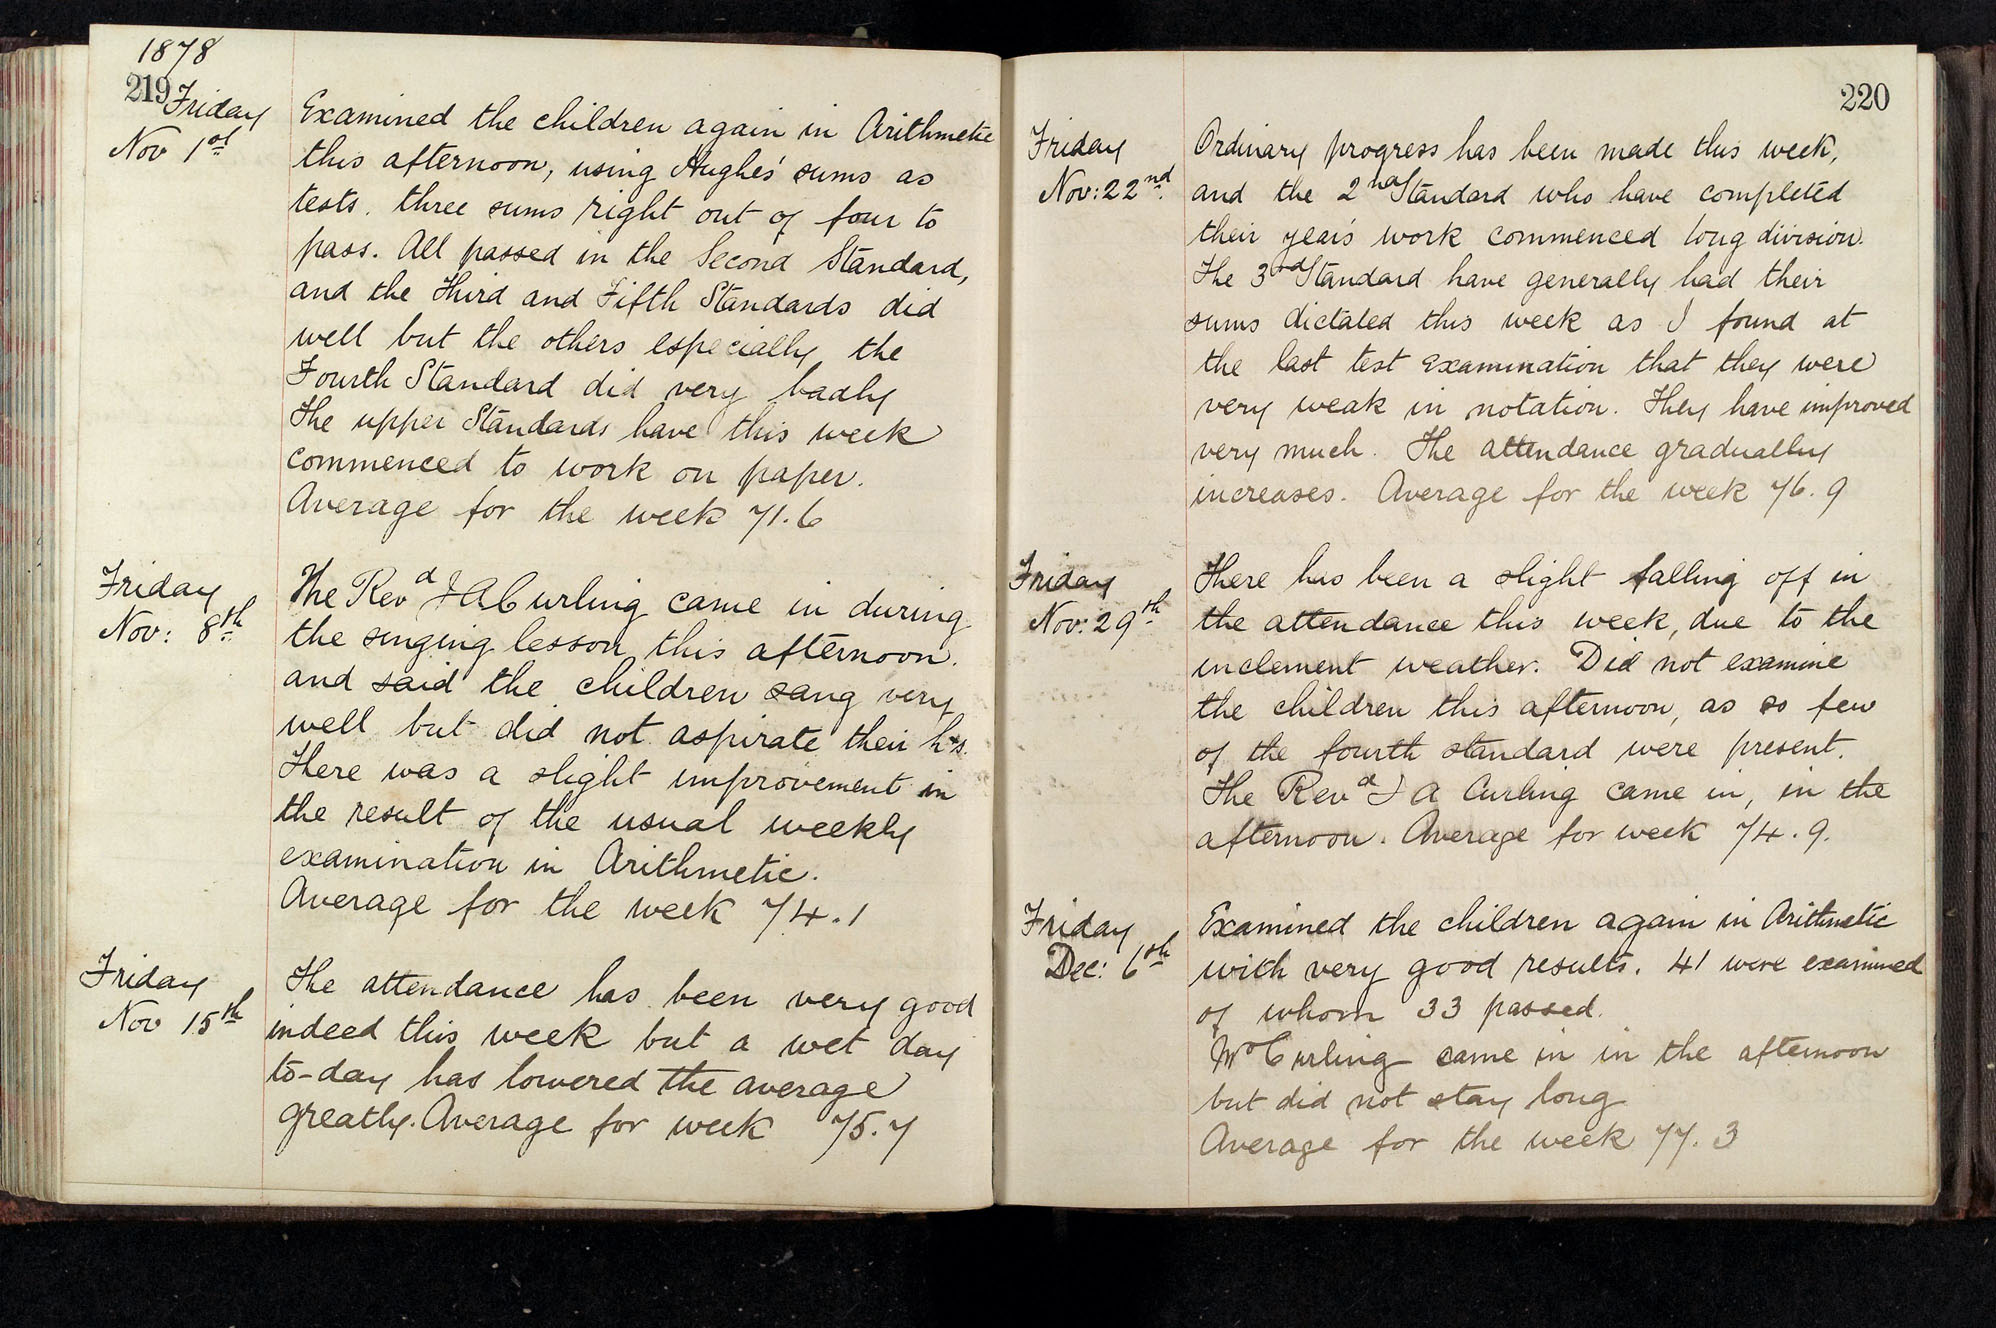 1878
219
Friday
Nov 1st
Examined the children again in Arithmetic
this afternoon, using Hughes' sums as
tests. three sums right out of four to
pass. All passed in the Second Standard,
and the Third and Fifth Standards did
well but the others especially the
Fourth Standard did very badly
The upper Standards have this week
commenced to work on paper.
Average for the week 71.6
Friday
Nov: 8th
The Revd J A Curling came in during
the singing lesson this afternoon.
and said the children sang very
well but did not aspirate their h's.
There was a slight improvement in
the result of the usual weekly
examination in Arithmetic.
Average for the week 74.1
Friday
Nov 15th
The attendance has been very good
indeed this week but a wet day
to-day has lowered the average
greatly. Average for week 75.7
220
Friday
Nov: 22nd
Ordinary progress has been made this week,
and the 2nd Standard who have completed
their year's work commenced long division.
The 3rd Standard have generally had their
sums dictated this week as I found at
the last test examination that they were
very weak in notation. They have improved
very much. The attendance gradually
increases. Average for the week 76.9
Friday
Nov: 29th
There has been a slight falling off in
the attendance this week, due to the
inclement weather. Did not examine
the children this afternoon, as so few
of the fourth standard were present.
The Revd J A Curling came in, in the
afternoon. Average for week 74.9.
Friday
Dec: 6th
Examined the children again in Arithmetic
with very good results. 41 were examined
of whom 33 passed.
Mr Curling came in in the afternoon
but did not stay long
Average for the week 77.3